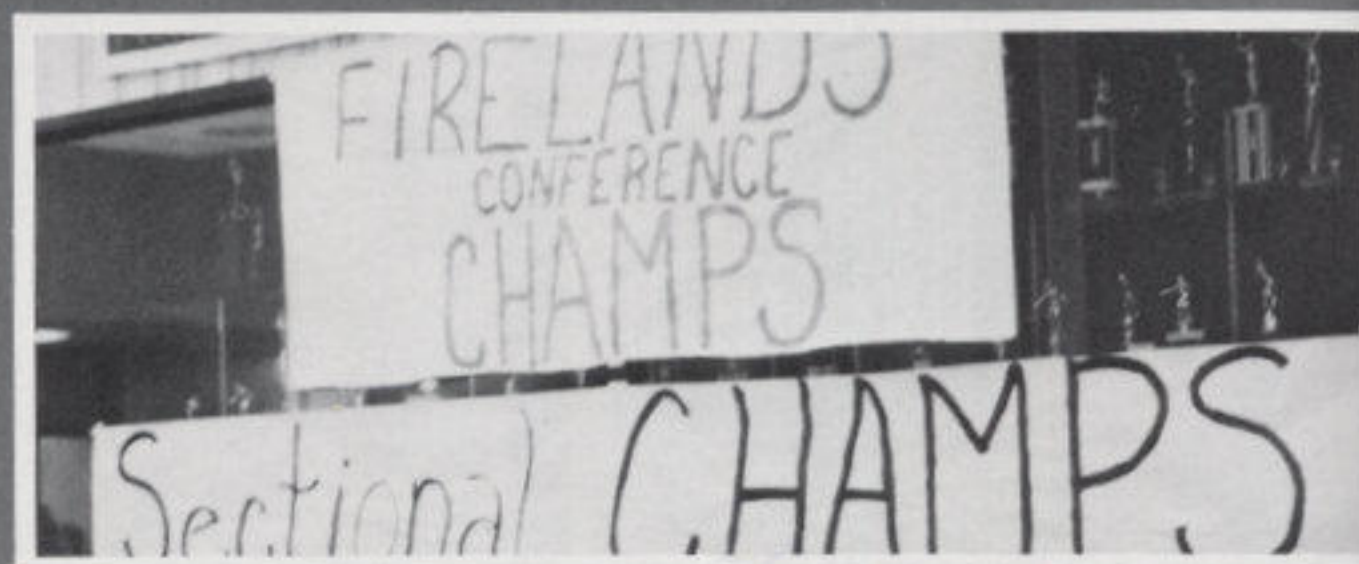 FIRELANDS
CONFERENCE
CHAMPS
Sectional CHAMPS